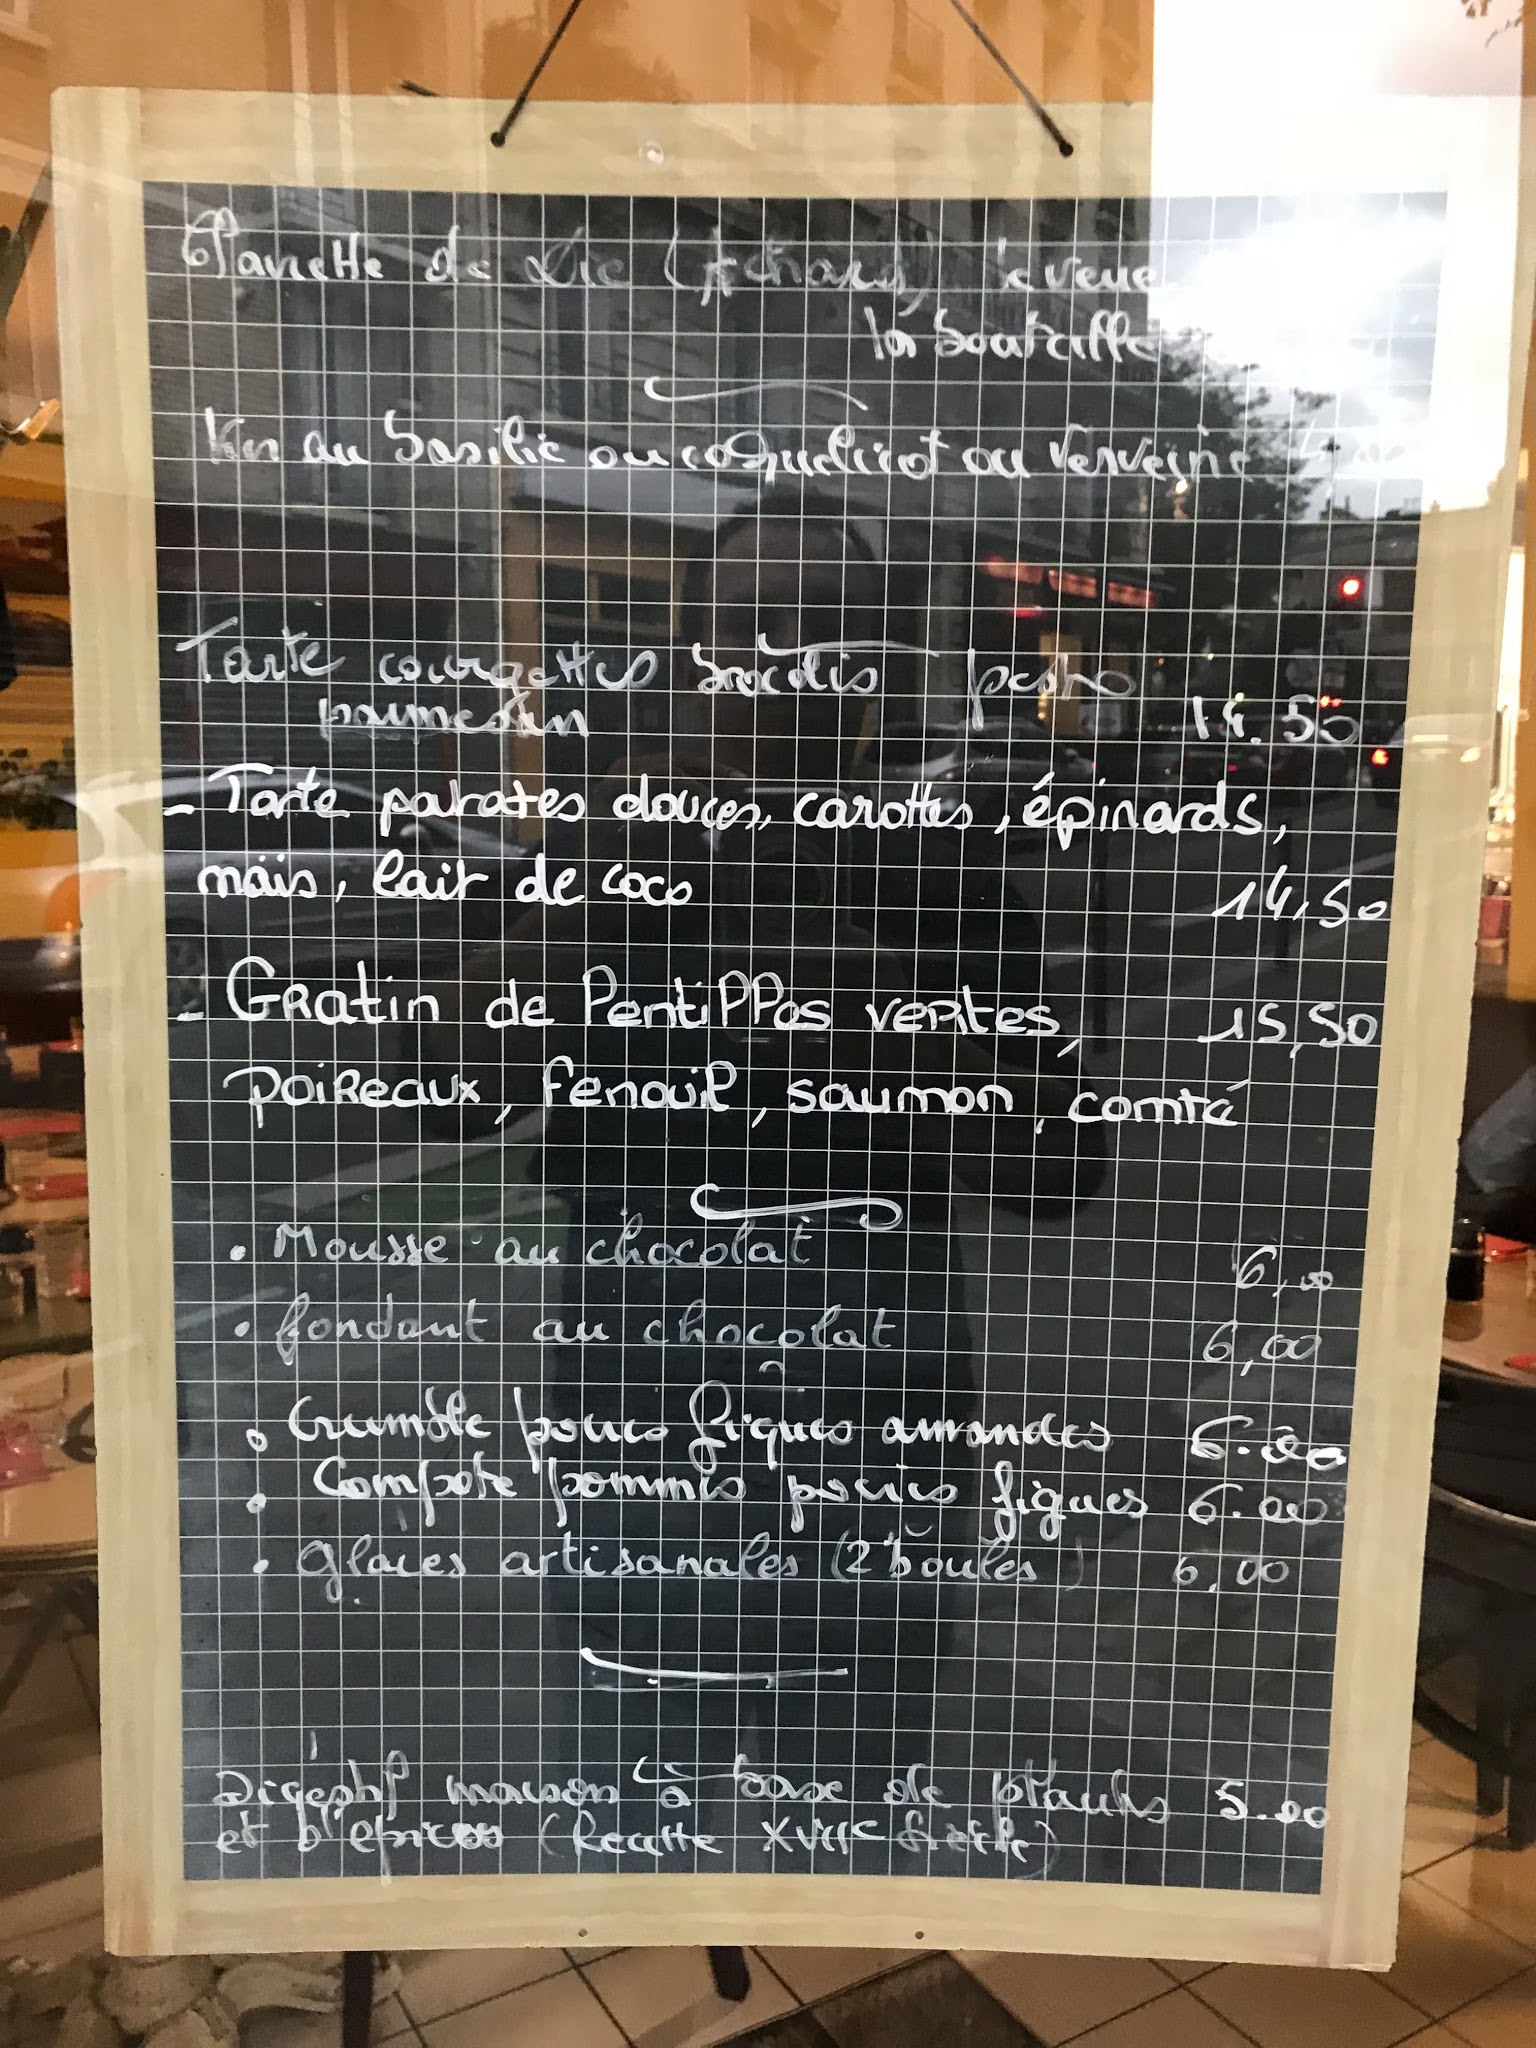 Clairette de Die (Achard) le verre
la bouteille
Kir au basilic ou coquelicot ou verveine
Tarte courgettes brocolis pesto
parmesan 14.50
- Tarte patates douces, carottes, épinards,
maïs, lait de coco 14,50
- Gratin de lentilles vertes, 15,50
poireaux, fenouil, saumon, comté
• Mousse au chocolat 6,00
• fondant au chocolat 6,00
• Crumble poires figues amandes 6.00
• Compote pommes poires figues 6.00
• Glaces artisanales (2 boules) 6,00
Digestif maison à base de plantes 5.00
et d'épices (Recette XVIIe siècle)